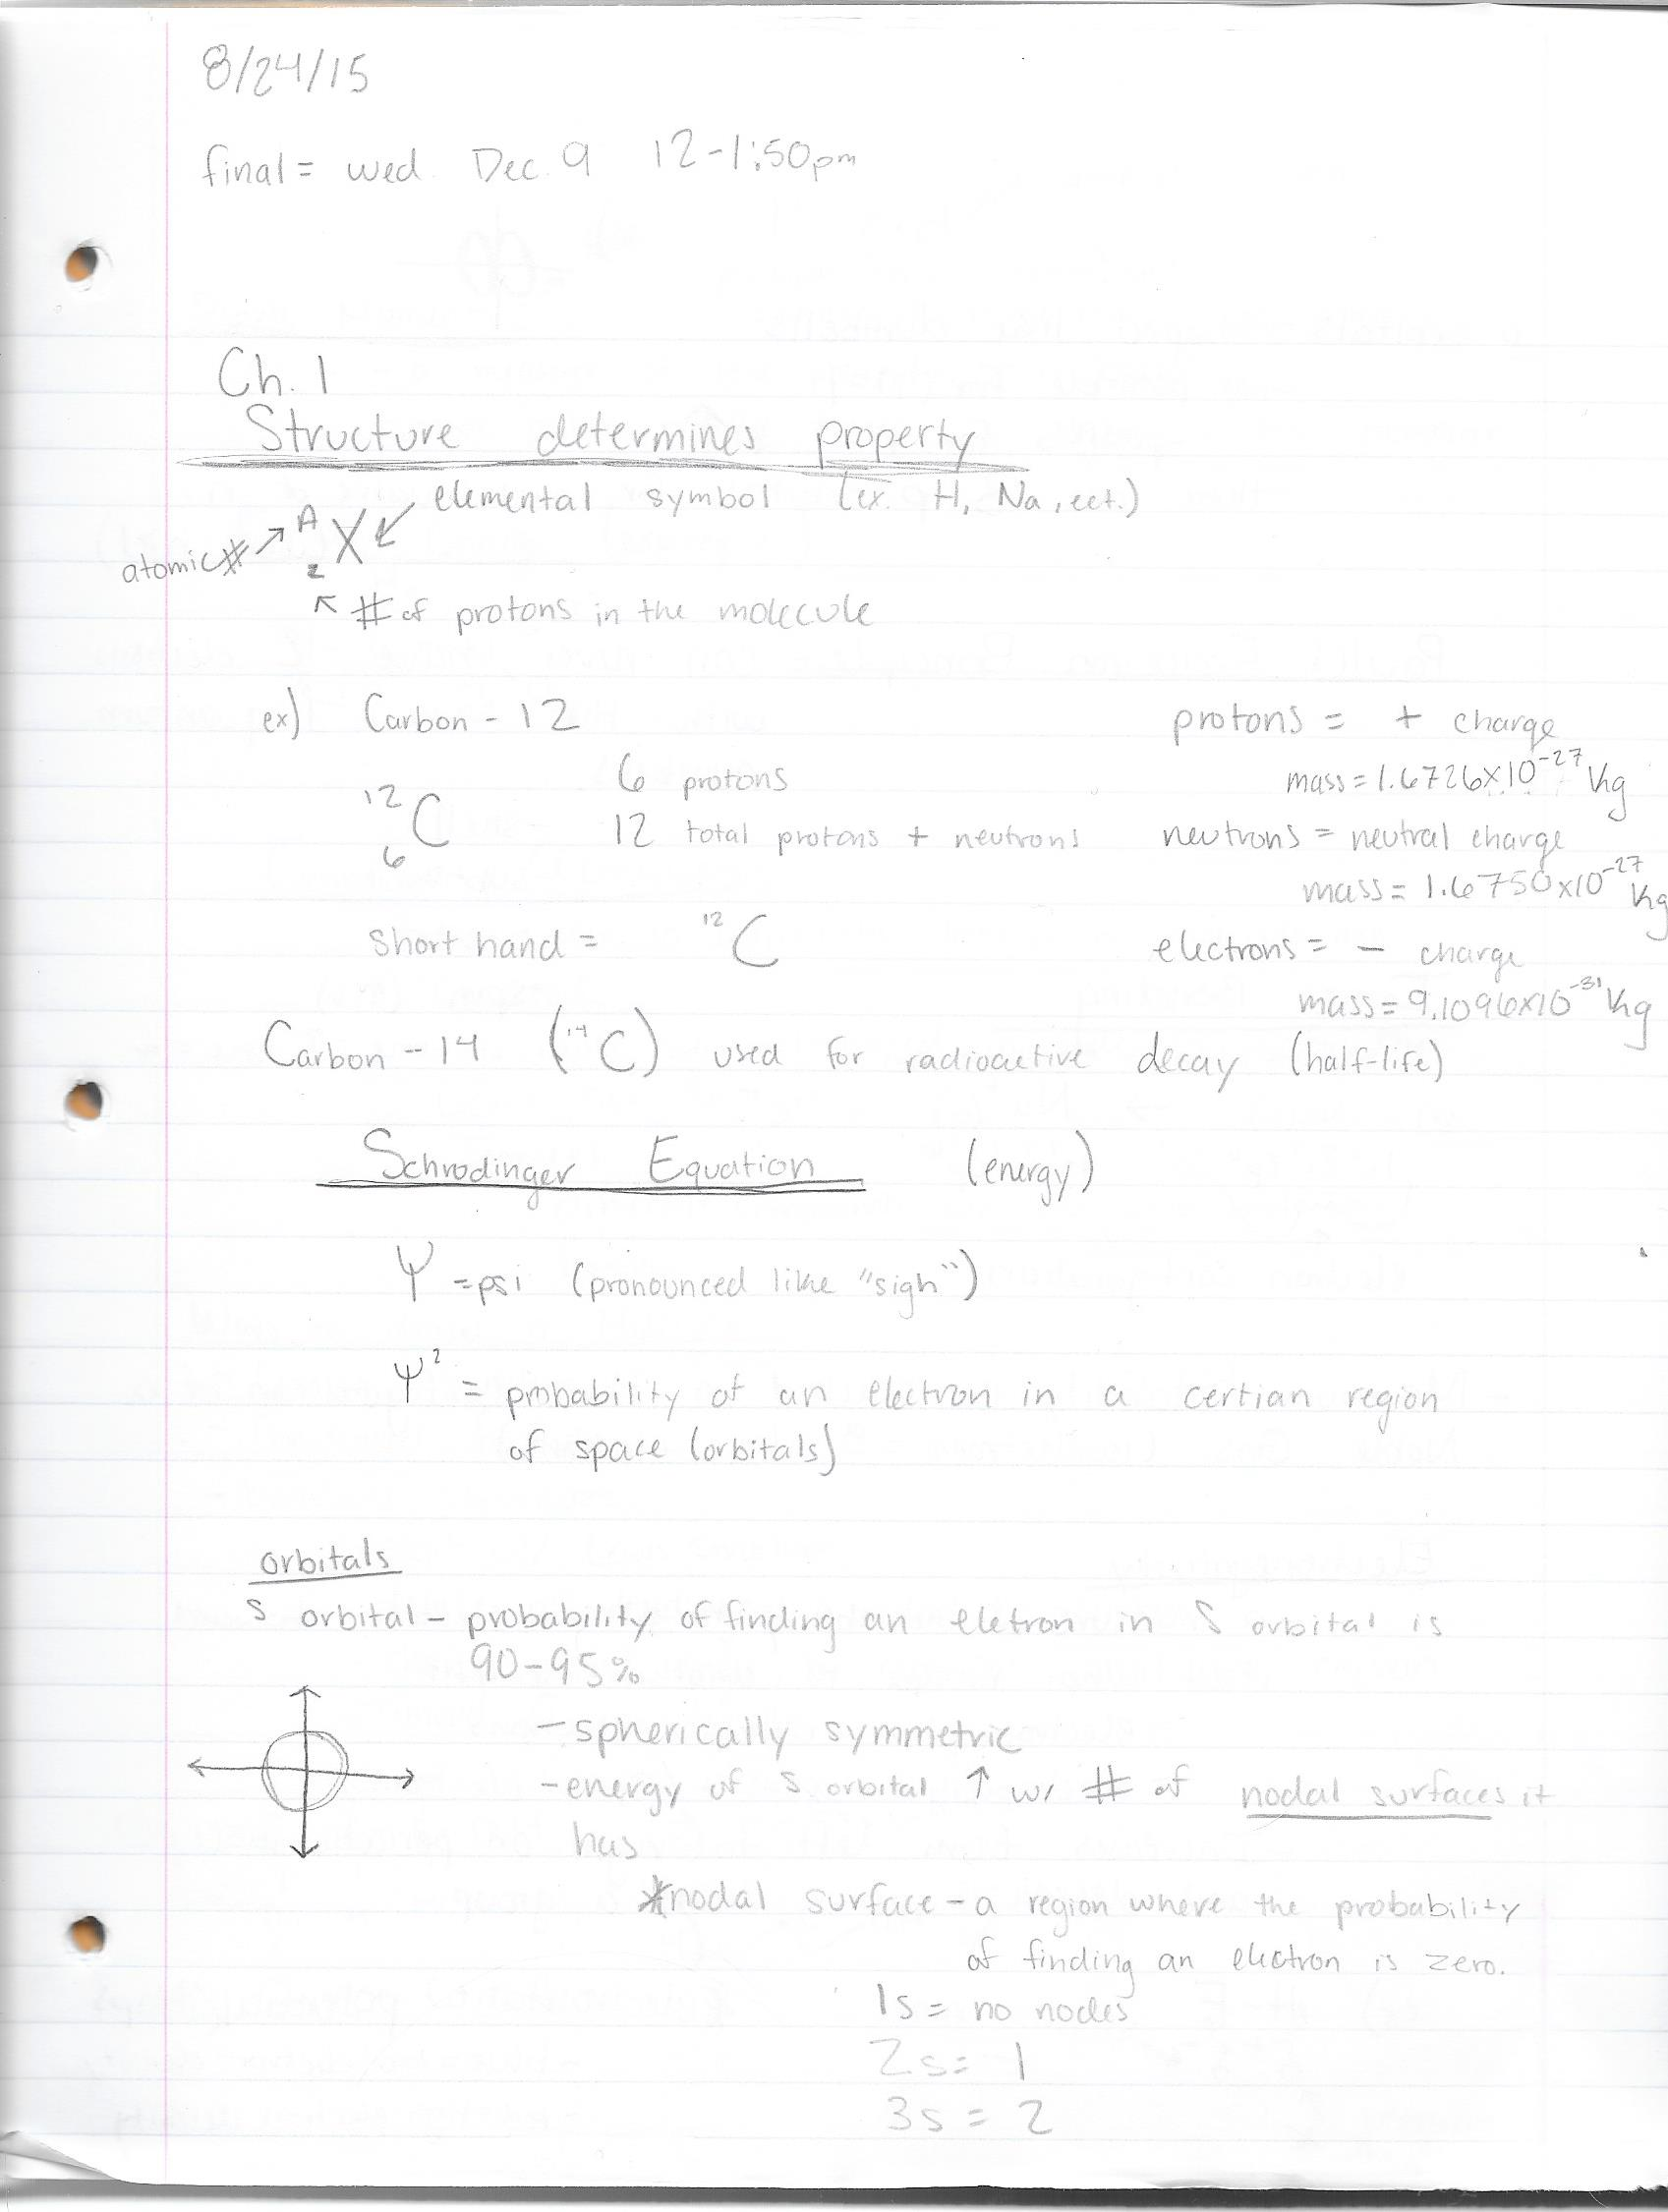 8/24/15
final = wed. Dec. 9 12-1:50pm
Ch. 1
Structure determines property
elemental symbol (ex. H, Na, ect.)
atomic# → A X
z
# of protons in the molecule
ex) Carbon - 12
6 protons
¹²₆C 12 total protons + neutrons
short hand = ¹²C
protons = + charge
mass = 1.6726x10⁻²⁷ kg
neutrons = neutral charge
mass = 1.6750x10⁻²⁷ kg
electrons = - charge
mass = 9.1096x10⁻³¹ kg
Carbon - 14 (¹⁴C) used for radioactive decay (half-life)
Schrodinger Equation (energy)
Ψ = psi (pronounced like "sigh")
Ψ² = probability of an electron in a certian region
of space (orbitals)
orbitals
s orbital - probability of finding an eletron in S orbital is
90-95%
- spherically symmetric
- energy of s orbital ↑ w/ # of nodal surfaces it
has
*nodal surface - a region where the probability
of finding an electron is zero.
1s = no nodes
2s = 1
3s = 2